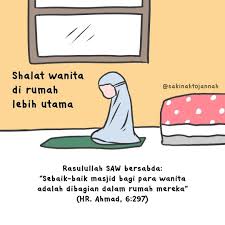 Shalat wanita
di rumah
lebih utama
@sakinahtojannah
Rasulullah SAW bersabda:
"Sebaik-baik masjid bagi para wanita
adalah dibagian dalam rumah mereka"
(HR. Ahmad, 6:297)